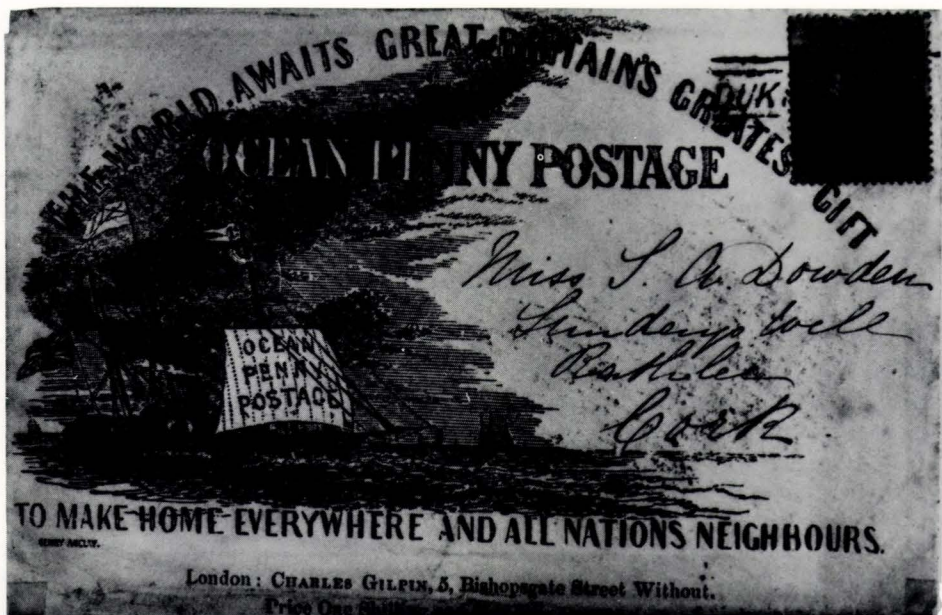 THE WORLD AWAITS GREAT BRITAIN'S GREATEST GIFT
DUK
OCEAN PENNY POSTAGE
Miss S. A Dowden
Sundays Well
Cork
OCEAN
PENNY
POSTAGE
TO MAKE HOME EVERYWHERE AND ALL NATIONS NEIGHHOURS.
London: CHARLES GILPIN, 5, Bishopsgate Street Without.
Price One